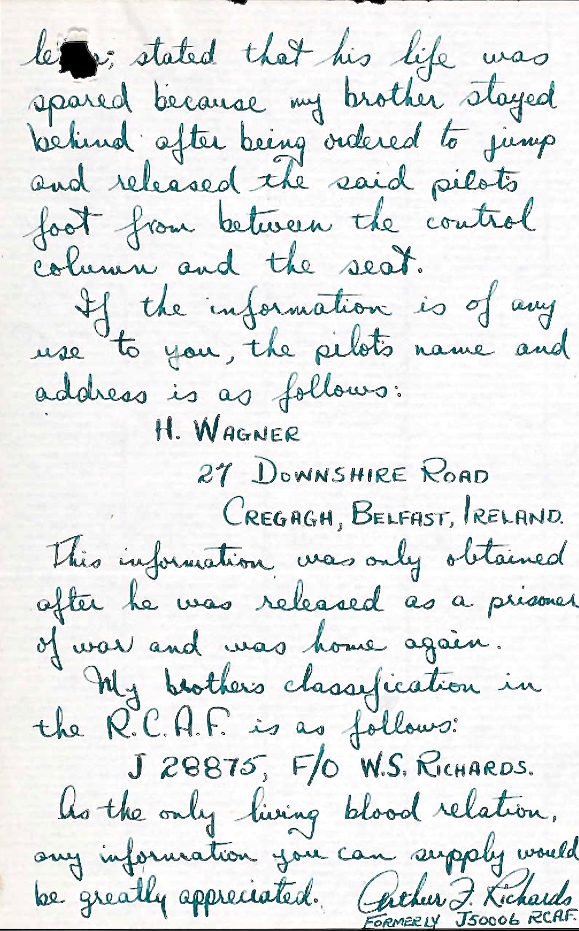 stated that his life was
spared because my brother stayed
behind after being ordered to jump
and released the said pilots
foot from between the control
column and the seat.
If the information is of any
use to you, the pilots name and
address is as follows:
H. WAGNER
27 DOWNSHIRE ROAD
CREGAGH, BELFAST, IRELAND.
This information was only obtained
after he was released as a prisoner
of war and was home again.
My brothers classification in
the R.C.A.F. is as follows:
J 28875, F/O W.S. RICHARDS.
As the only living blood relation,
any information you can supply would
be greatly appreciated. Arthur F. Richards
FORMERLY J50006 RCAF.